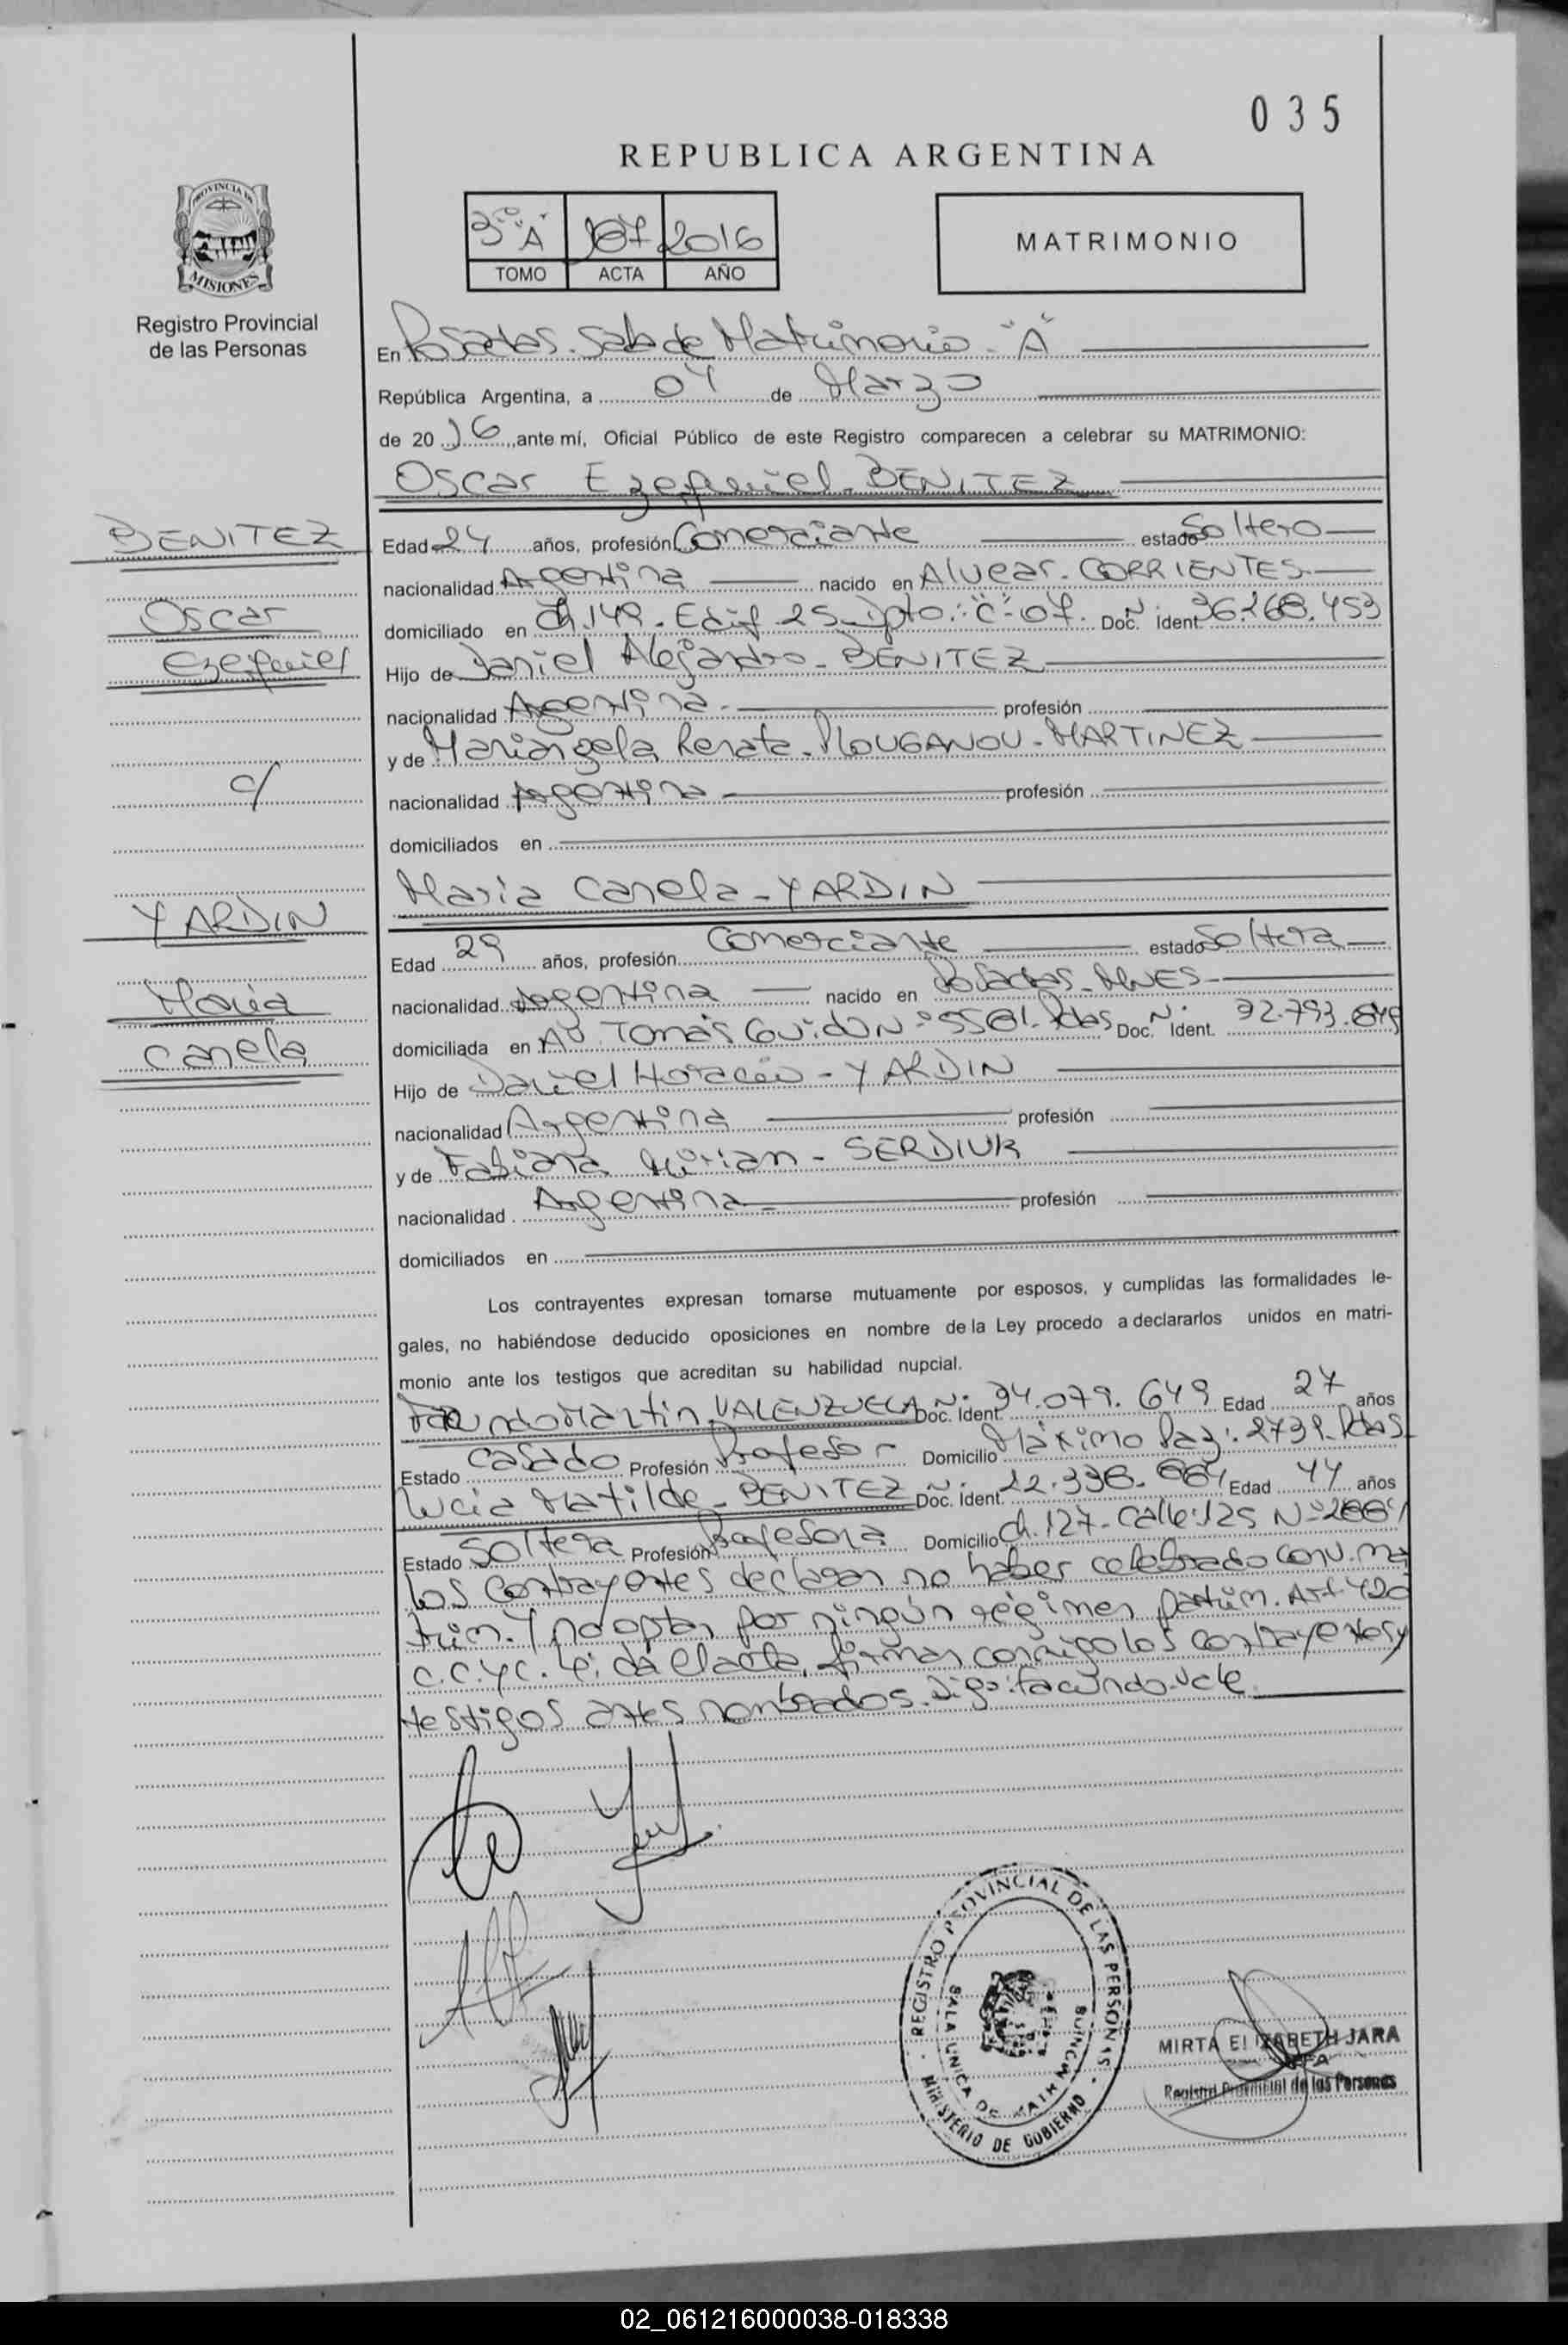 035
REPUBLICA ARGENTINA
PROVINCIA DE
MISIONES
Registro Provincial
de las Personas
3º "A" 187 2016
TOMO ACTA AÑO
MATRIMONIO
En Posadas. Sala de Matrimonio - "A"
República Argentina, a 04 de Marzo
de 20 16, ante mí, Oficial Público de este Registro comparecen a celebrar su MATRIMONIO:
Oscar Ezequiel - BENITEZ
BENITEZ
Oscar
Ezequiel
c/
YARDIN
María
Canela
Edad 24 años, profesión Comerciante estado Soltero
nacionalidad Argentina nacido en Alvear - CORRIENTES
domiciliado en Ch. 149 - Edif. 25 - Dpto.: "C" - 07. Doc. Nº Ident. 36.268.453
Hijo de Daniel Alejandro - BENITEZ
nacionalidad Argentina profesión
y de Mariangela Renata - PLOUGANOU - MARTINEZ
nacionalidad Argentina profesión
domiciliados en
María Canela - YARDIN
Edad 29 años, profesión Comerciante estado Soltera
nacionalidad Argentina nacido en Posadas - MNES
domiciliada en Av. Tomás Guido Nº 5581. Pdas Doc. Nº Ident. 32.793.849
Hijo de Daniel Horacio - YARDIN
nacionalidad Argentina profesión
y de Fabiana Mirian - SERDIUK
nacionalidad Argentina profesión
domiciliados en
Los contrayentes expresan tomarse mutuamente por esposos, y cumplidas las formalidades le-
gales, no habiéndose deducido oposiciones en nombre de la Ley procedo a declararlos unidos en matri-
monio ante los testigos que acreditan su habilidad nupcial.
Martín VALENZUELA Doc. Nº Ident. 34.079.649 Edad 27 años
Estado Casado Profesión Profesor Domicilio Máximo Paz: 2739 - Pdas
Lucia Matilde - BENITEZ Doc. Nº Ident. 22.336.664 Edad 44 años
Estado Soltera Profesión Profesora Domicilio Ch. 127 - Calle: 125 Nº
Los contrayentes declaran no haber celebrado conv. ma
trim. y no optan por ningún régimen patrim. Art 420
C.C.yC. da el acta, firman conmigo los contrayentes y
testigos antes nombrados. Digo: Facundo. Vale
REGISTRO PROVINCIAL DE LAS PERSONAS
MINISTERIO DE GOBIERNO
SALA UNICA DE
MIRTA ELIZABETH JARA
JEFA
Registro Provincial de las Personas
02_061216000038-018338